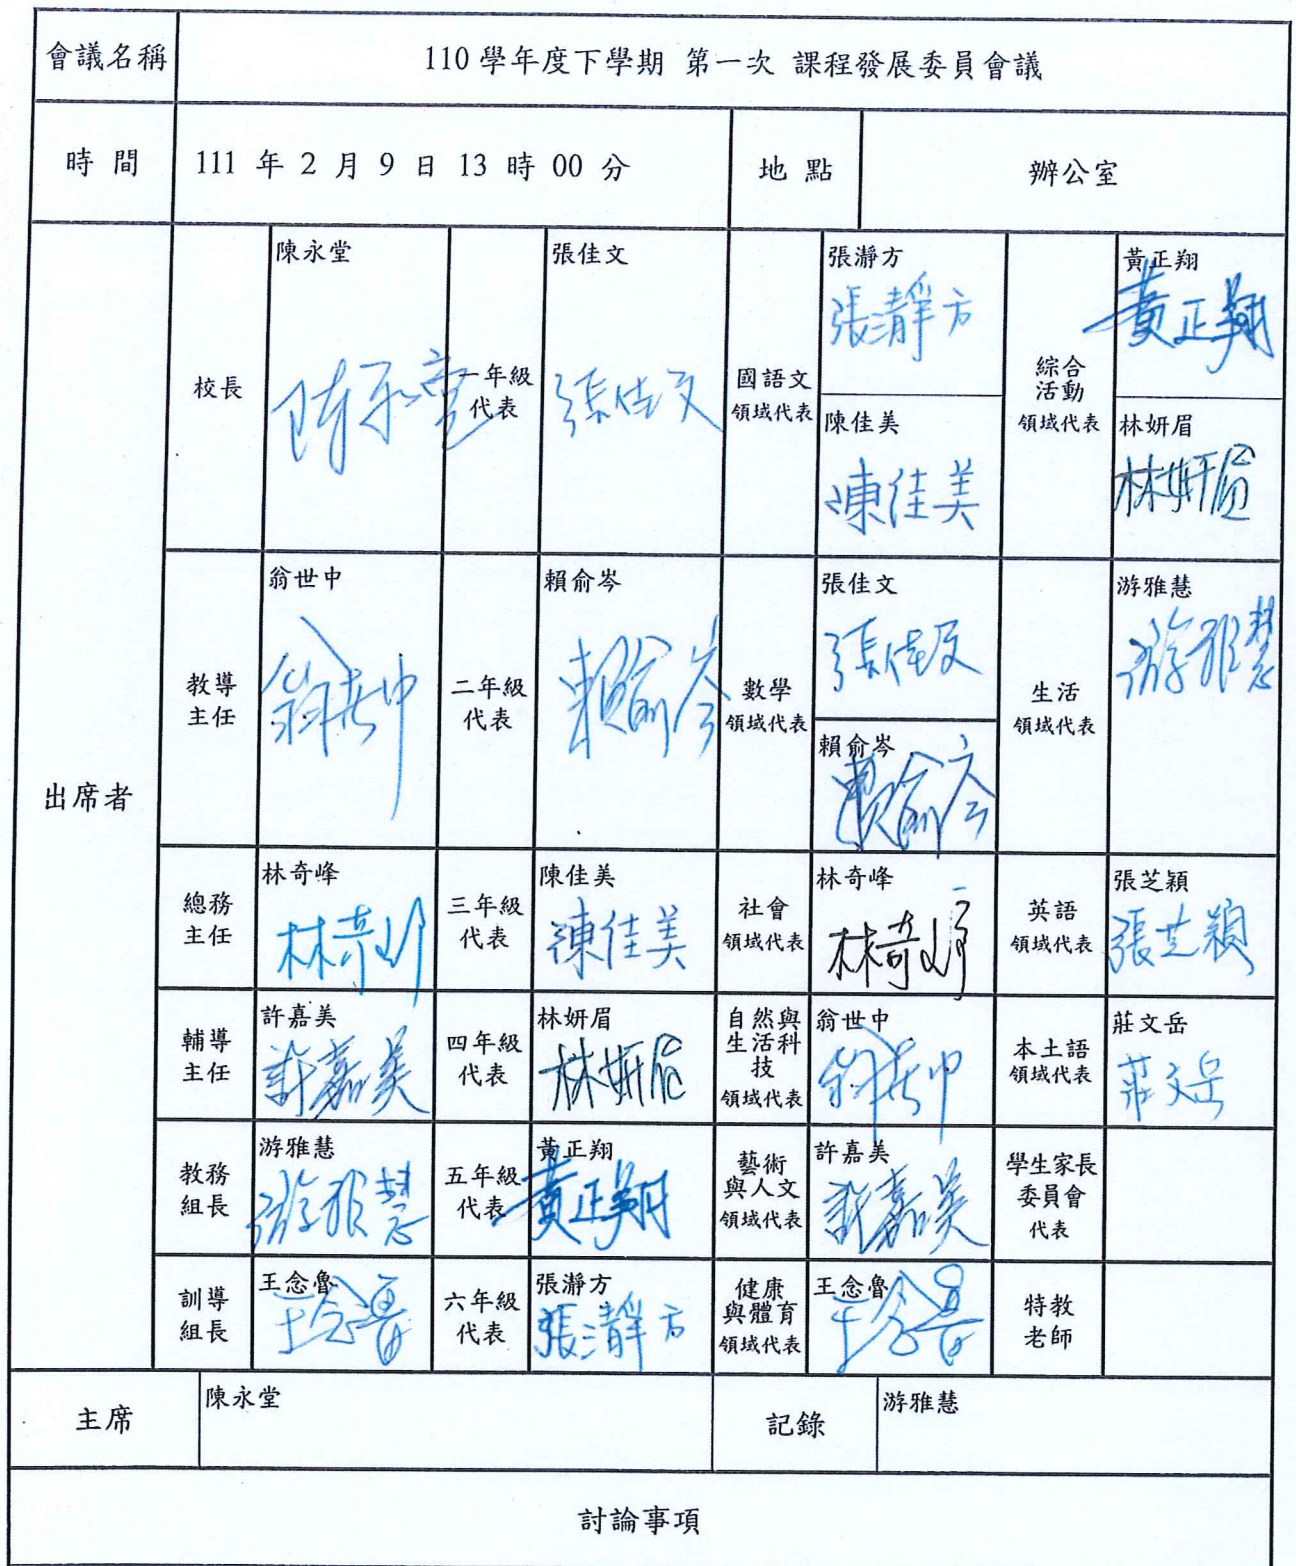 會議名稱
110 學年度下學期 第一次 課程發展委員會議
時 間
111 年 2 月 9 日 13 時 00 分
地 點
辦公室
出席者
校長
陳永堂
陳永堂
一年級
代表
張佳文
張佳文
國語文
領域代表
張瀞方
張瀞方
陳佳美
陳佳美
綜合
活動
領域代表
黃正翔
黃正翔
林妍眉
林妍眉
教導
主任
翁世中
翁世中
二年級
代表
賴俞岑
賴俞岑
數學
領域代表
張佳文
張佳文
賴俞岑
賴俞岑
生活
領域代表
游雅慧
游雅慧
總務
主任
林奇峰
林奇峰
三年級
代表
陳佳美
陳佳美
社會
領域代表
林奇峰
林奇峰
英語
領域代表
張芝穎
張芝穎
輔導
主任
許嘉美
許嘉美
四年級
代表
林妍眉
林妍眉
自然與
生活科
技
領域代表
翁世中
翁世中
本土語
領域代表
莊文岳
莊文岳
教務
組長
游雅慧
游雅慧
五年級
代表
黃正翔
黃正翔
藝術
與人文
領域代表
許嘉美
許嘉美
學生家長
委員會
代表
訓導
組長
王念魯
王念魯
六年級
代表
張瀞方
張瀞方
健康
與體育
領域代表
王念魯
王念魯
特教
老師
主席
陳永堂
記錄
游雅慧
討論事項